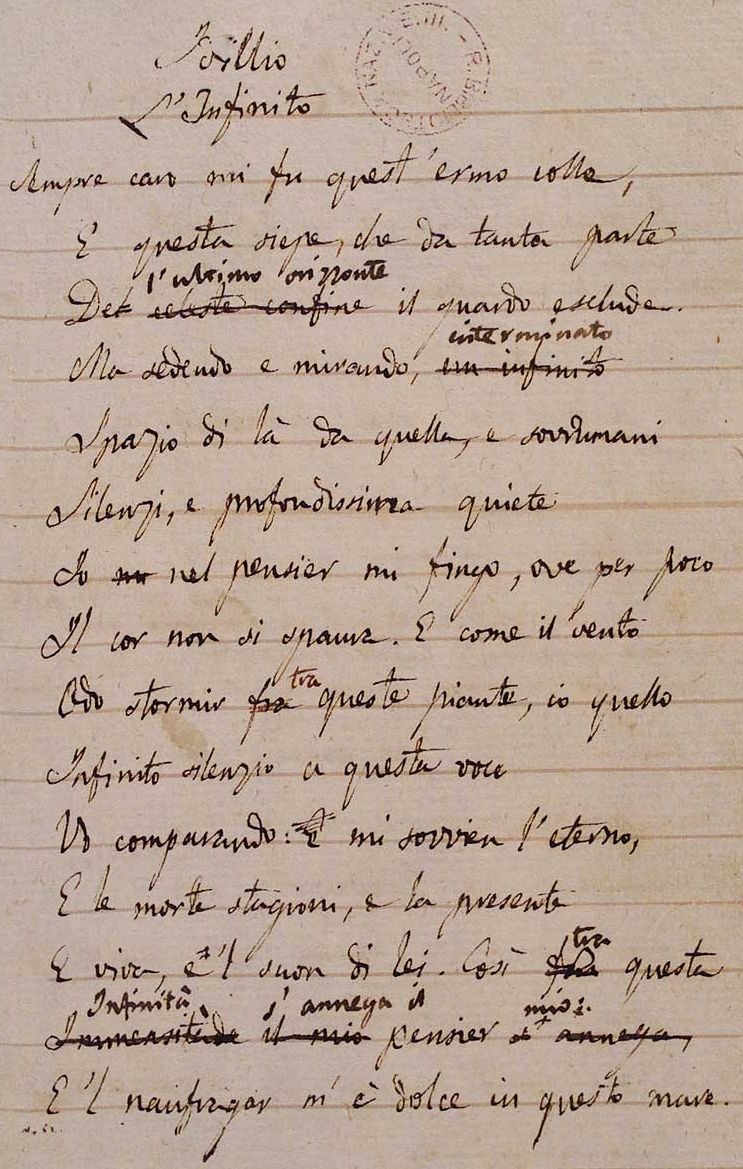 Idillio
L'Infinito
R. BIBLIOTECA NAZ. E. III. - NAPOLI
Sempre caro mi fu quest'ermo colle,
E questa siepe, che da tanta parte
l'ultimo orizzonte
Del celeste confine il guardo esclude.
interminato
Ma sedendo e mirando, un infinito
Spazio di là da quella, e sovrumani
Silenzi, e profondissima quiete
Io nel pensier mi fingo, ove per poco
Il cor non si spaura. E come il vento
tra
Odo stormir fra queste piante, io quello
Infinito silenzio a questa voce
Vo comparando: E mi sovvien l'eterno,
E le morte stagioni, e la presente
tra
E viva, e 'l suon di lei. Così fra questa
Infinità s'annega il mio:
Immensitade il mio pensier s'annega,
E 'l naufragar m'è dolce in questo mare.